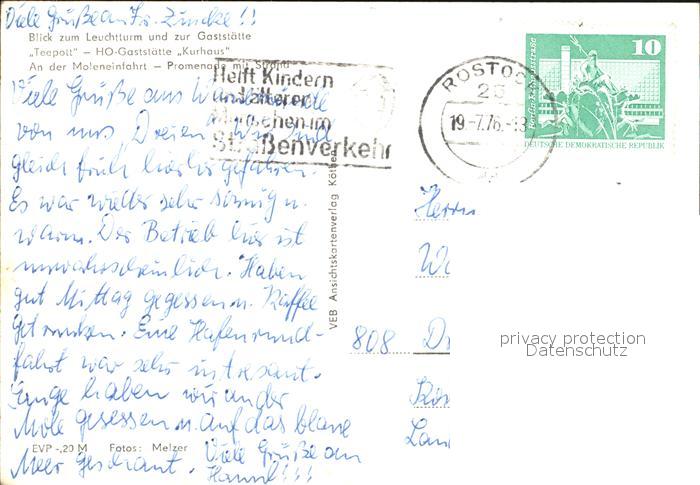 Viele Grüße an Fr. Zuncke!!
Blick zum Leuchtturm und zur Gaststätte
„Teepott" — HO-Gaststätte „Kurhaus"
An der Moleneinfahrt — Promenade mit Strand
Helft Kindern
und älteren
Menschen im
Straßenverkehr
ROSTOCK
25
19.-7.76.-13
10
DEUTSCHE DEMOKRATISCHE REPUBLIK
Viele Grüße aus Warnemünde
von uns Dreien. Wir sind
gleich früh hierher gefahren.
Es war wieder sehr sonnig u.
warm. Der Betrieb hier ist
unwahrscheinlich. Haben
gut Mittag gegessen u. Kaffee
getrunken. Eine Hafenrund-
fahrt war sehr interessant.
Lange haben wir an der
Mole gesessen u. auf das blaue
Meer geschaut. Viele Grüße an
Hannel!!!
VEB Ansichtskartenverlag Köthen
EVP -,20 M Fotos: Melzer
Herrn
W
808 D
Lan
privacy protection
Datenschutz